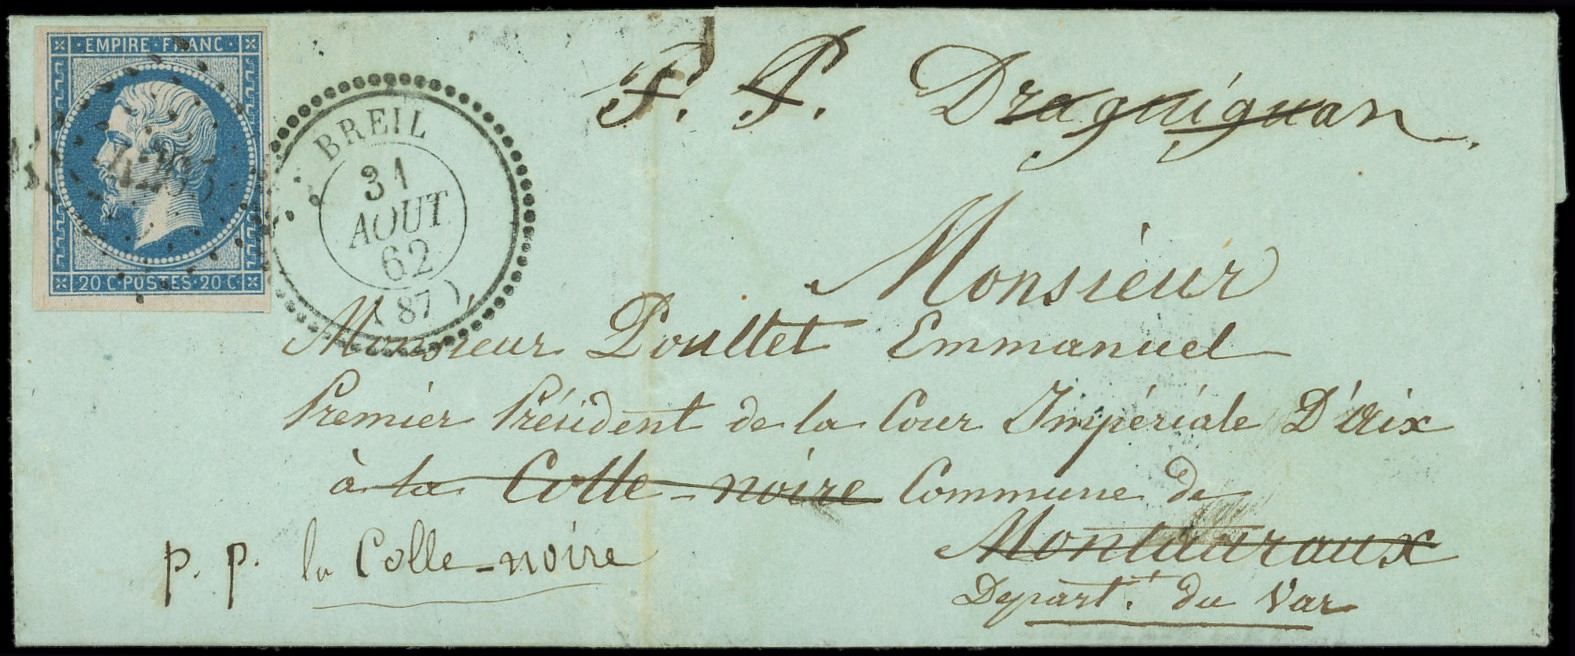 EMPIRE · FRANC ·
20 C · POSTES · 20 C ·
4225
BREIL
31
AOUT
62
(87)
P. P. Draguignan.
Monsieur
Monsieur Poultet Emmanuel
Premier Président de la Cour Impériale D'Aix
à la Colle-noire Commune de
Montauroux
p. p. la Colle-noire
Depart.t du Var